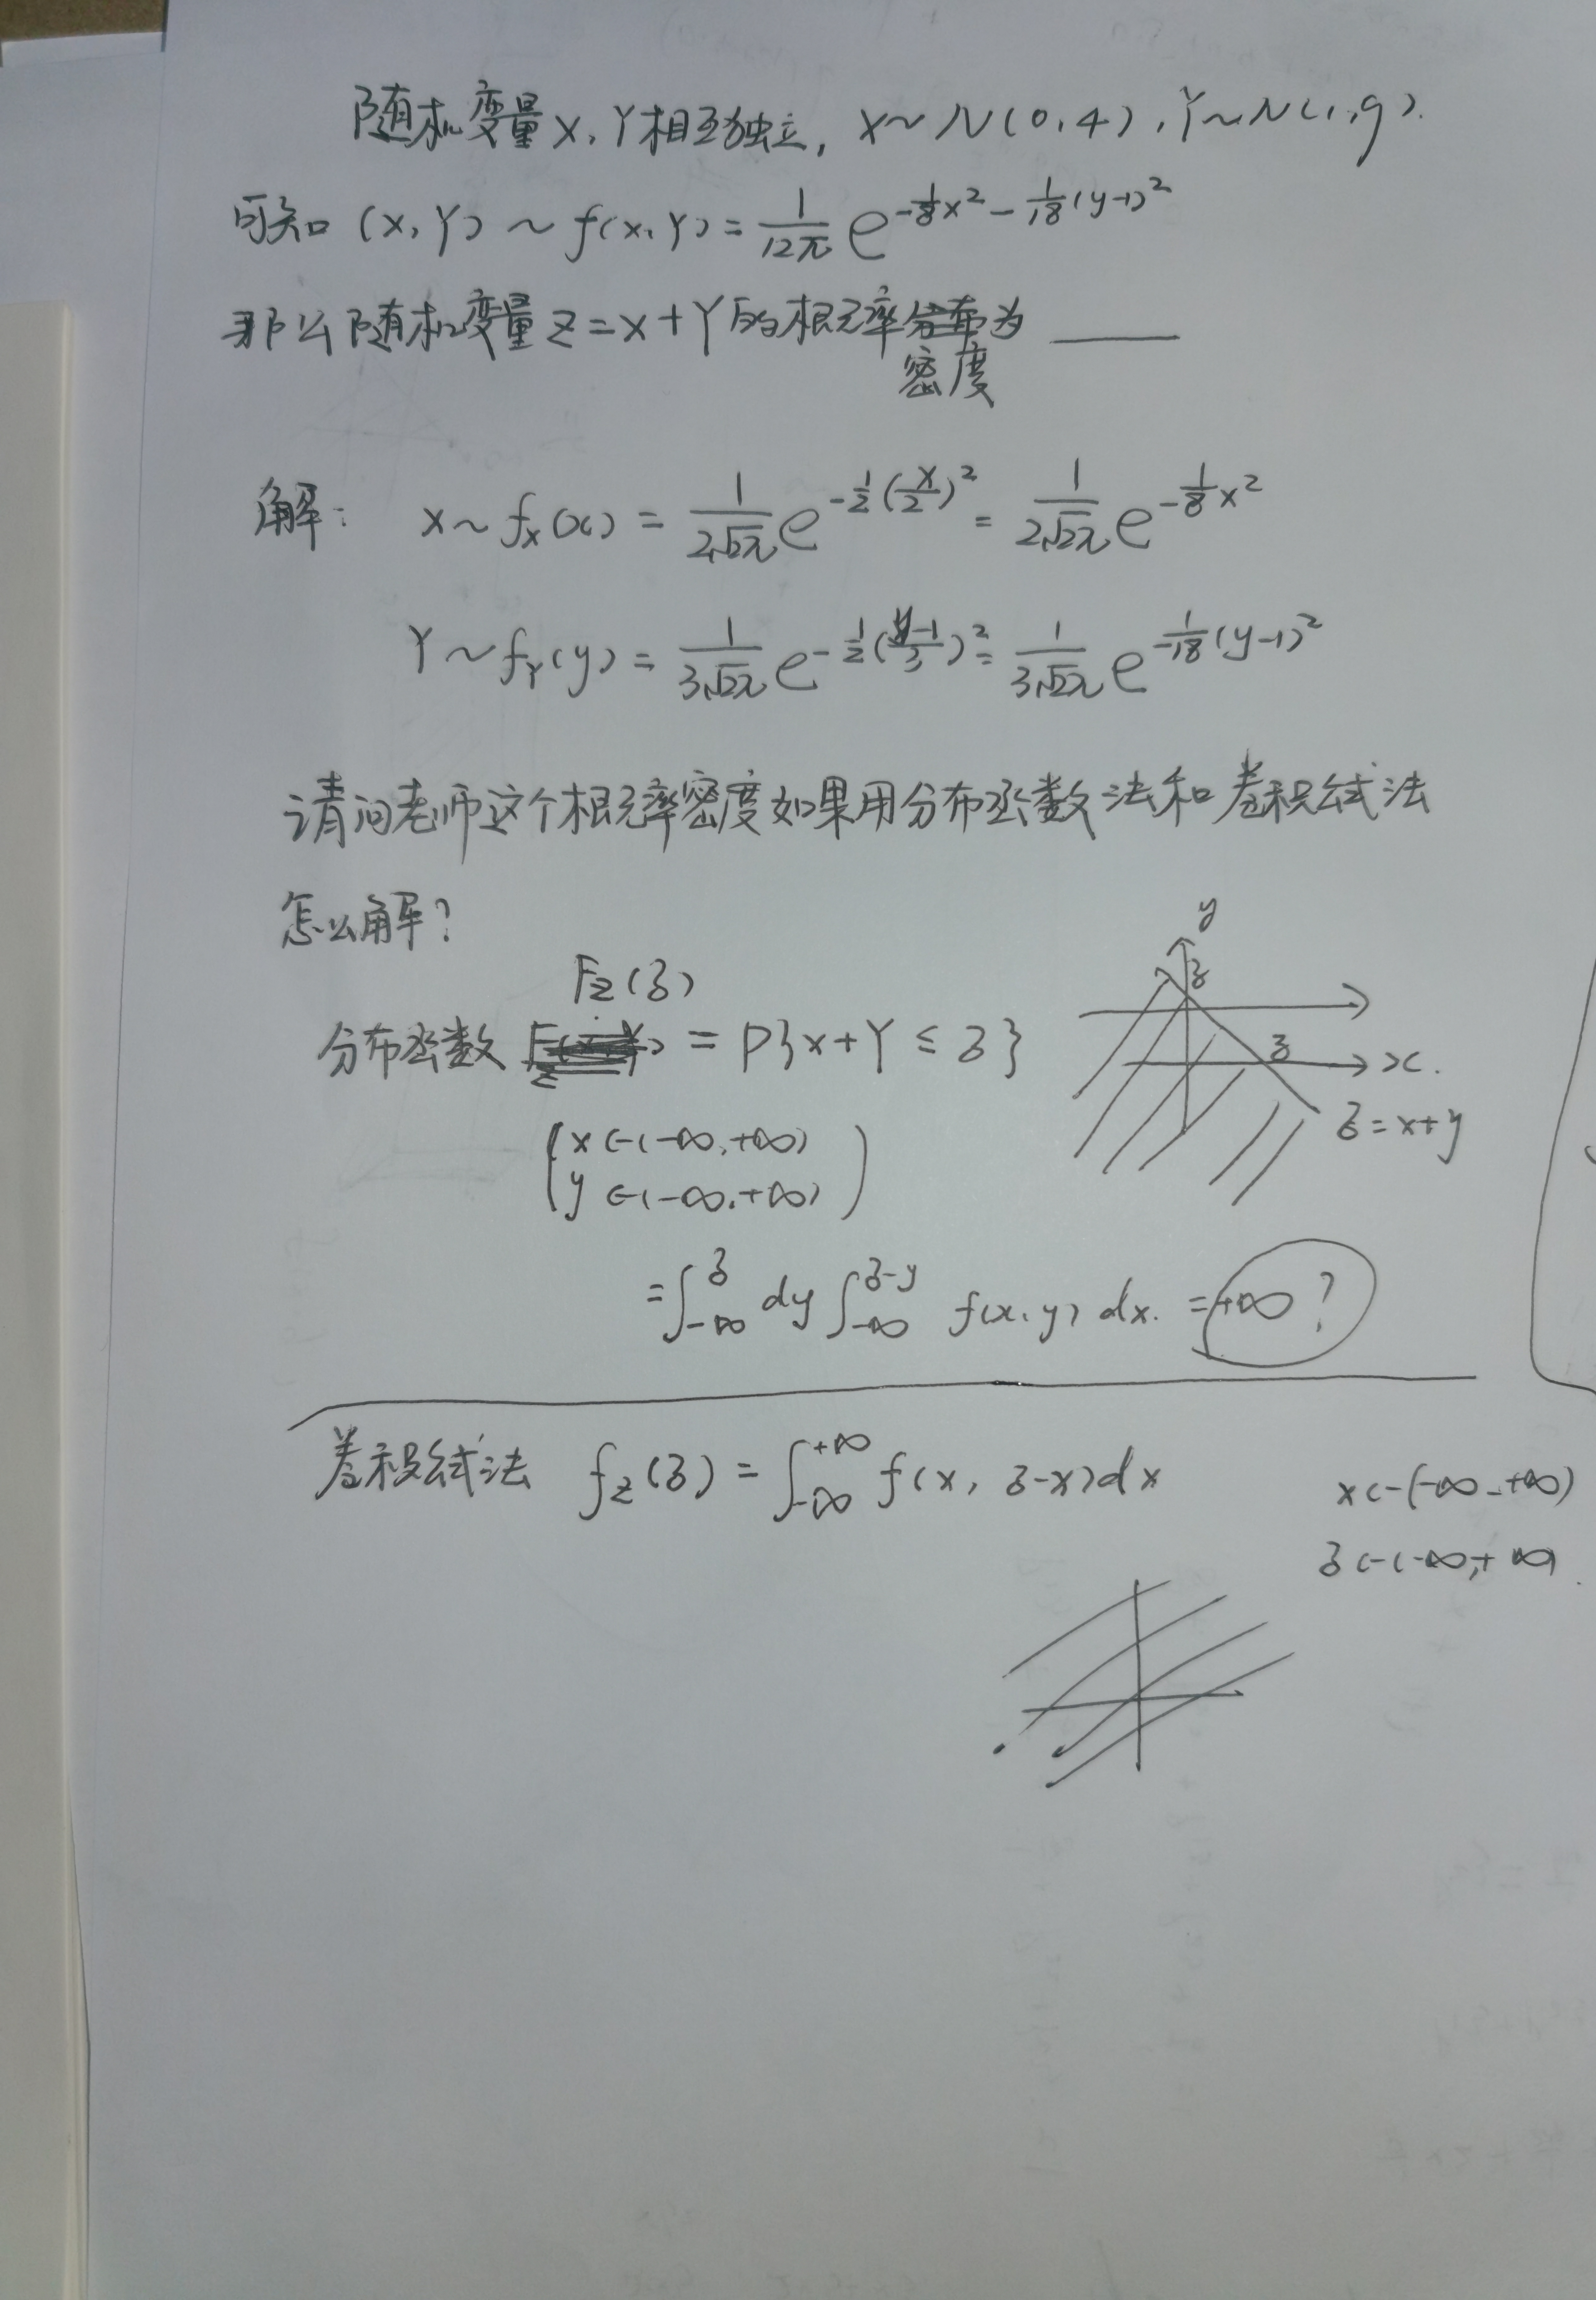 随机变量X,Y相互独立, X~N(0,4), Y~N(1,9).
可知 (X,Y)~f(x,Y)=\frac{1}{12π}e^{-\frac{1}{8}x^2-\frac{1}{18}(y-1)^2}
那么随机变量Z=X+Y的概率密度为____
解: X~f_X(x)=\frac{1}{2\sqrt{2π}}e^{-\frac{1}{2}(\frac{x}{2})^2}=\frac{1}{2\sqrt{2π}}e^{-\frac{1}{8}x^2}
Y~f_Y(y)=\frac{1}{3\sqrt{2π}}e^{-\frac{1}{2}(\frac{y-1}{3})^2}=\frac{1}{3\sqrt{2π}}e^{-\frac{1}{18}(y-1)^2}
请问老师这个概率密度如果用分布函数法和卷积公式法
怎么解?
y
z
z
x.
z=x+y
分布函数 F_Z(z)=P{X+Y≤z}
x∈(-∞,+∞)
y∈(-∞,+∞)
=∫_{-∞}^{z}dy∫_{-∞}^{z-y}f(x,y)dx.=+∞?
卷积公式法 f_Z(z)=∫_{-∞}^{+∞}f(x,z-x)dx
x∈(-∞,+∞)
z∈(-∞,+∞)